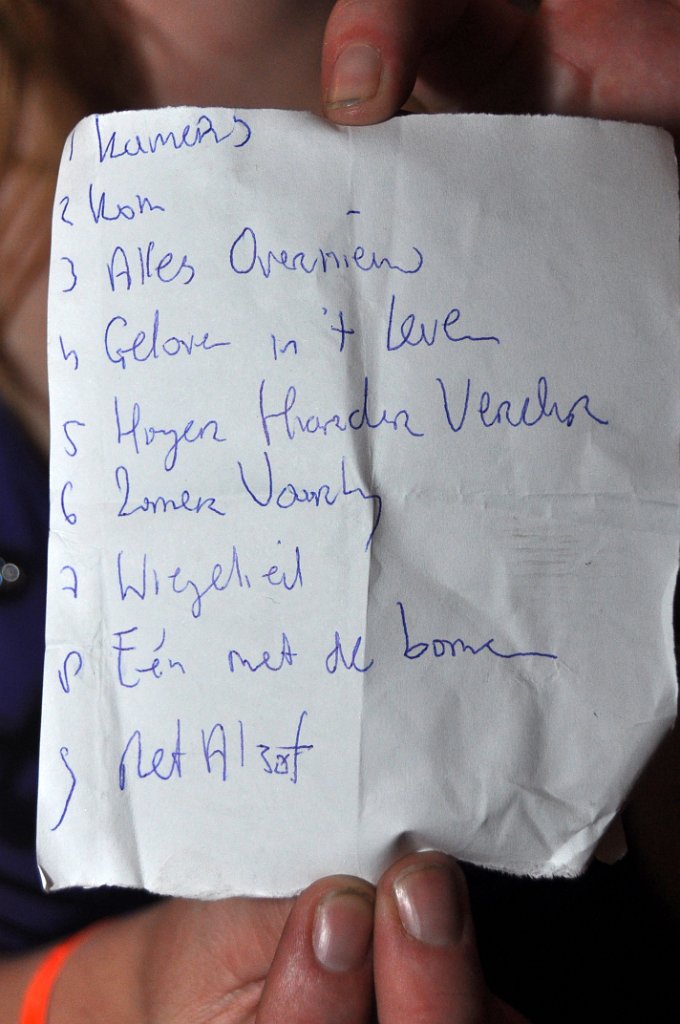 1 Kamers
2 Kom
3 Alles Overnieuw
4 Geloven in 't Leven
5 Hoger Harder Verder
6 Zomer Voorbij
7 Wiegelied
8 Eén met de bomen
9 Net Alsof